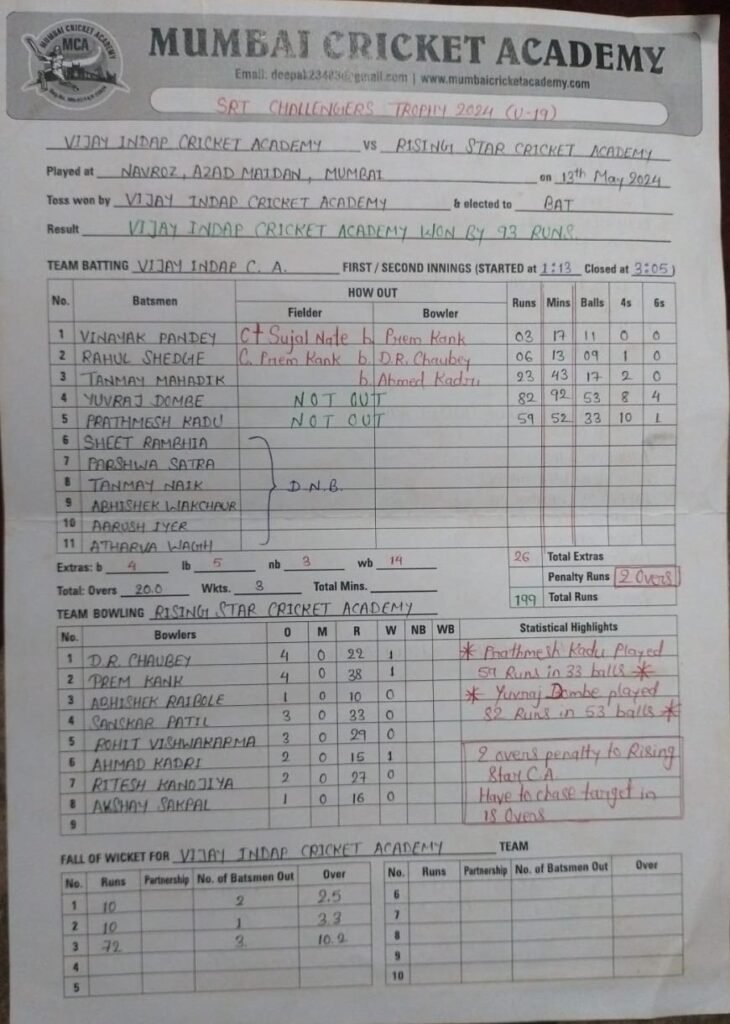 MUMBAI CRICKET ACADEMY
MCA
MUMBAI CRICKET ACADEMY
Email. deepak23423@gmail.com | www.mumbaicricketacademy.com
SRT CHALLENGERS TROPHY 2024 (U-19)
VIJAY INDAP CRICKET ACADEMY VS RISING STAR CRICKET ACADEMY
Played at NAVROZ, AZAD MAIDAN, MUMBAI on 13th May 2024
Toss won by VIJAY INDAP CRICKET ACADEMY & elected to BAT
Result VIJAY INDAP CRICKET ACADEMY WON BY 93 RUNS.
TEAM BATTING VIJAY INDAP C. A. FIRST / SECOND INNINGS (STARTED at 1:13 Closed at 3:05)
No. Batsmen HOW OUT Runs Mins Balls 4s 6s
Fielder Bowler
1 VINAYAK PANDEY C+ Sujal Nate b. Prem Kank 03 17 11 0 0
2 RAHUL SHEDGE C. Prem Kank b. D.R. Chaubey 06 13 09 1 0
3 TANMAY MAHADIK b. Ahmed Kadri 23 43 17 2 0
4 YUVRAJ DOMBE NOT OUT 82 92 53 8 4
5 PRATHMESH KADU NOT OUT 59 52 33 10 1
6 SHEET RAMBHIA
7 PARSHWA SATRA
8 TANMAY NAIK D.N.B.
9 ABHISHEK WAKCHAUR
10 AARUSH IYER
11 ATHARVA WAGH
Extras: b 4 lb 5 nb 3 wb 14 26 Total Extras
Penalty Runs 2 Overs
Total: Overs 20.0 Wkts. 3 Total Mins. 199 Total Runs
TEAM BOWLING RISING STAR CRICKET ACADEMY
No. Bowlers O M R W NB WB Statistical Highlights
1 D.R. CHAUBEY 4 0 22 1
2 PREM KANK 4 0 38 1
3 ABHISHEK RAIBOLE 1 0 10 0
4 SANSKAR PATIL 3 0 33 0
5 ROHIT VISHWAKARMA 3 0 29 0
6 AHMAD KADRI 2 0 15 1
7 RITESH KANOJIYA 2 0 27 0
8 AKSHAY SAKPAL 1 0 16 0
9
* Prathmesh Kadu Played
59 Runs in 33 balls *
* Yuvraj Dombe played
82 Runs in 53 balls *
2 overs penalty to Rising
Star C.A
Have to chase target in
18 Overs
FALL OF WICKET FOR VIJAY INDAP CRICKET ACADEMY TEAM
No. Runs Partnership No. of Batsmen Out Over No. Runs Partnership No. of Batsmen Out Over
1 10 2 2.5 6
2 10 1 3.3 7
3 72 3 10.2 8
4 9
5 10